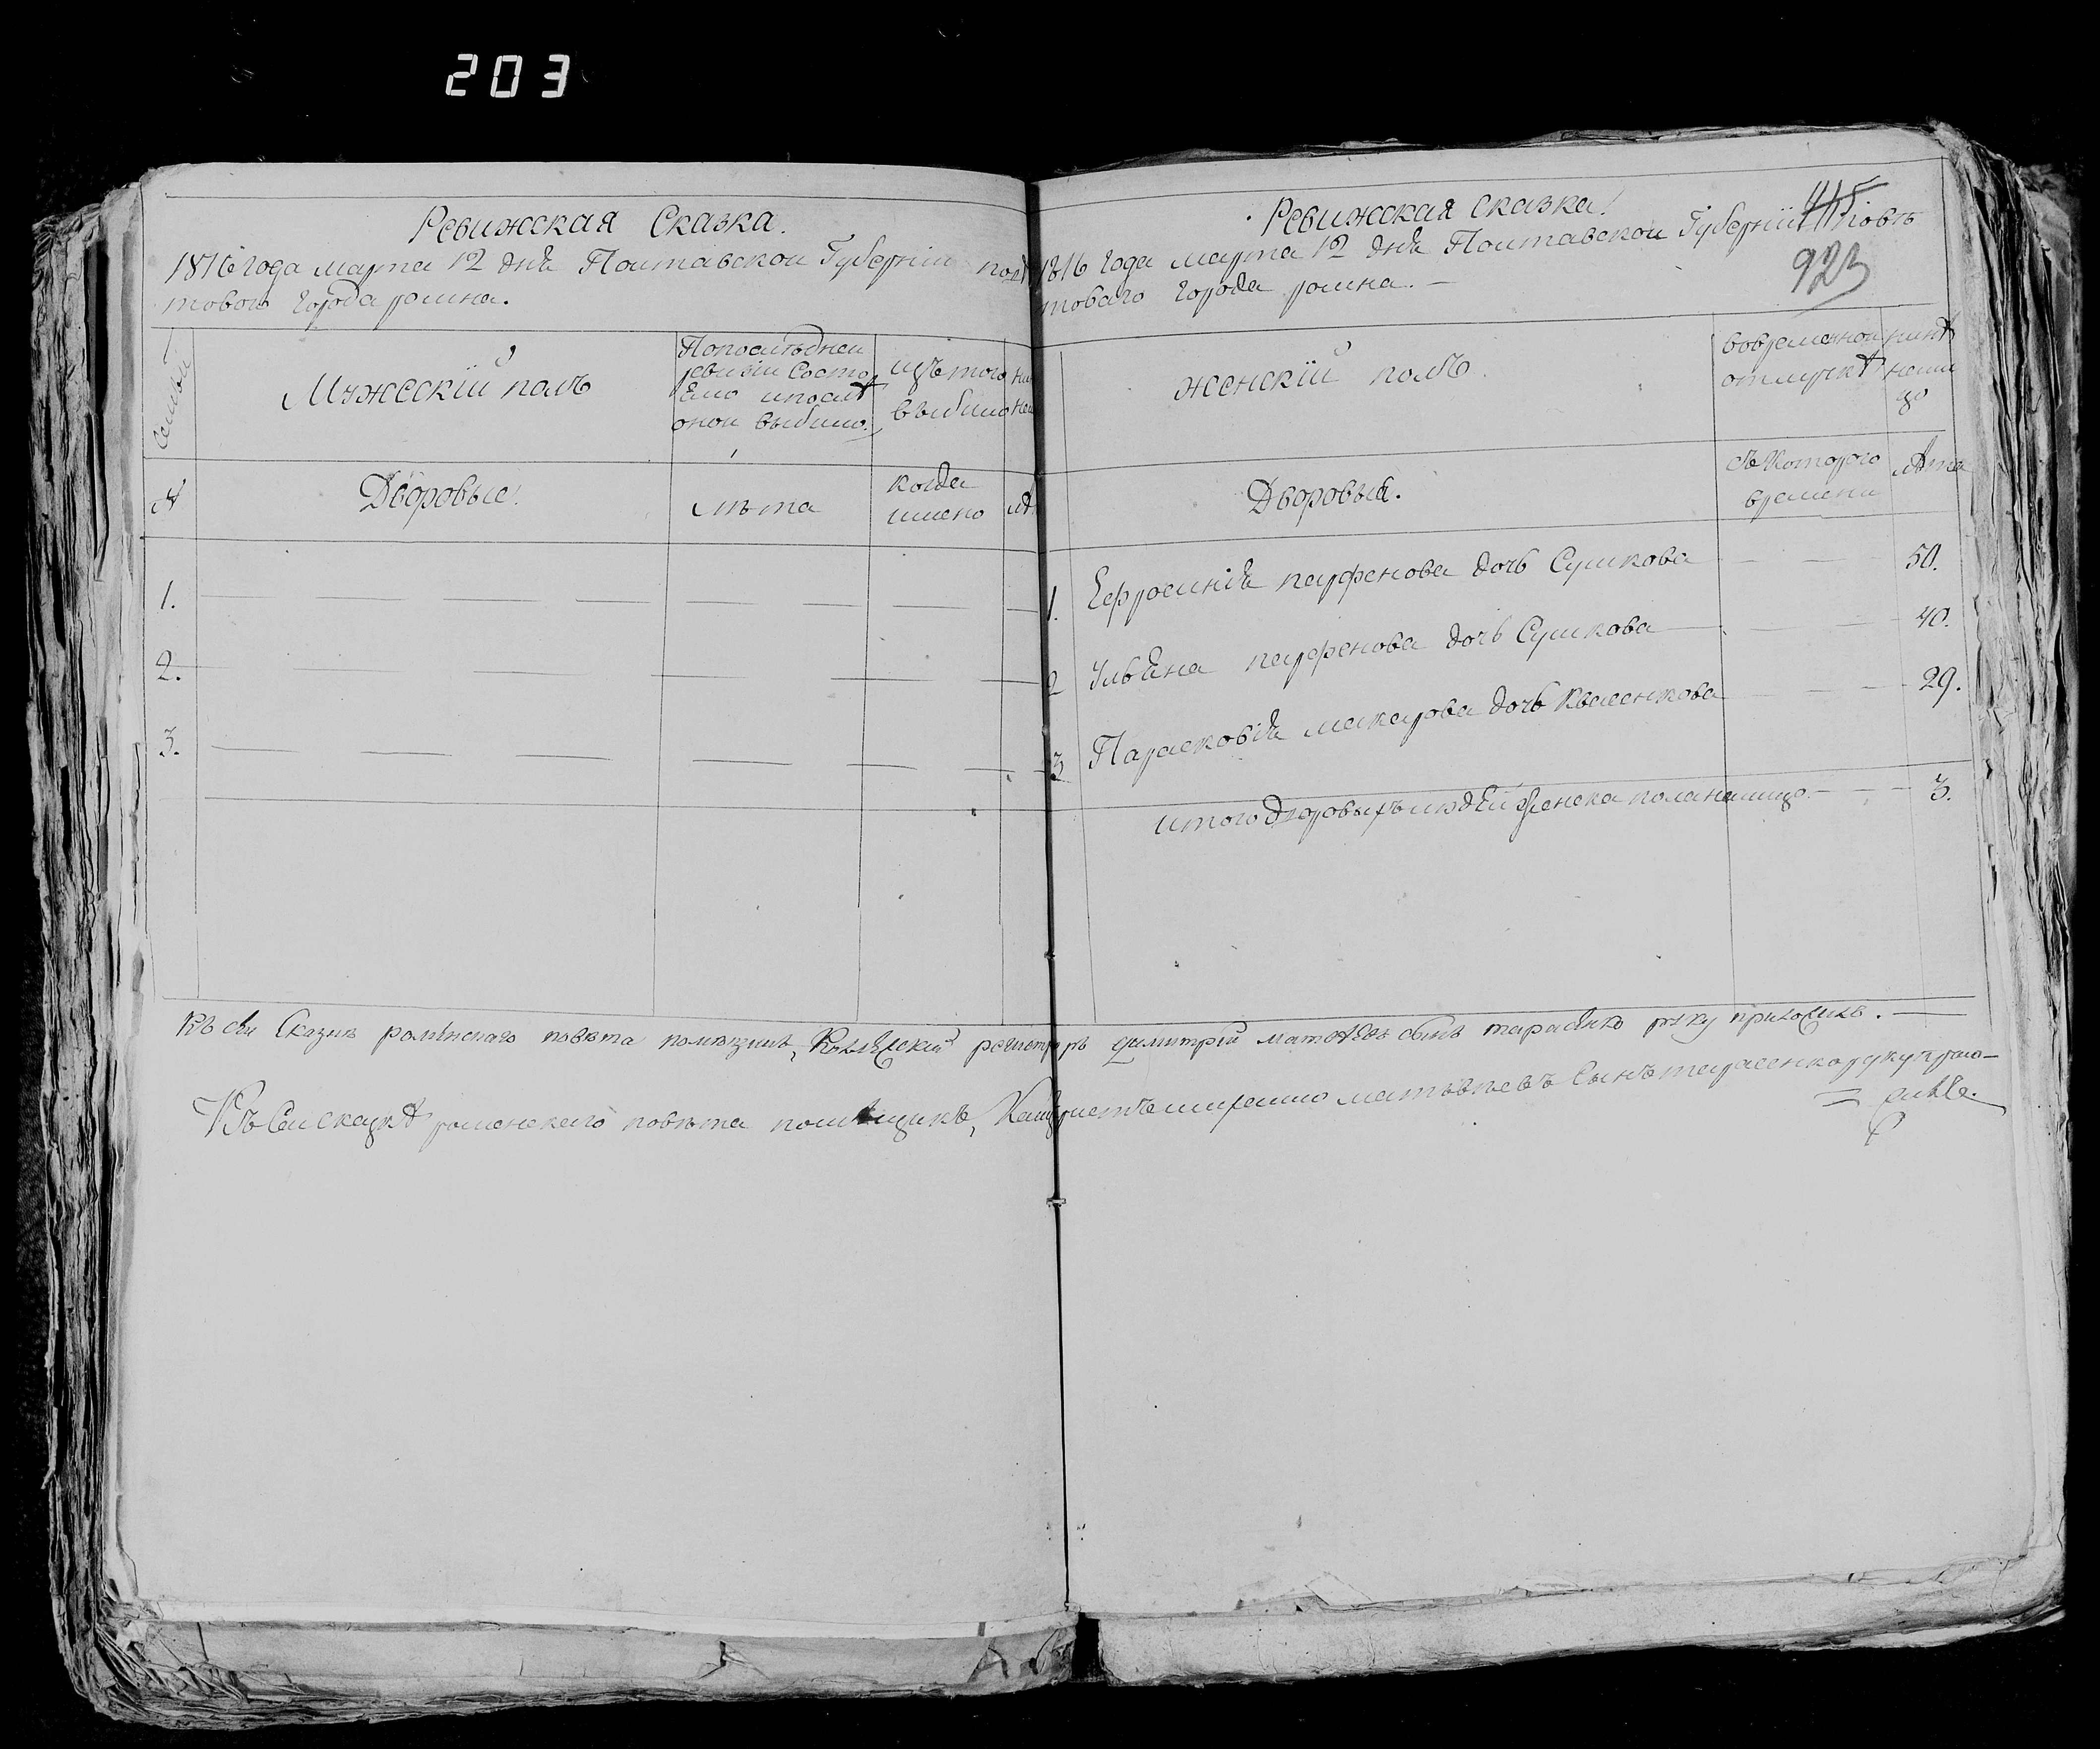 203
Ревижская Сказка.
1816 года марта 12 дня Полтавской Губернии пове
тового города ромна.
Семьи
Мужескiй полъ
Попоследней
ревизiи Состо
яло ипослѣ
оной выбыло.
изъ того
выбыло
№
Дворовые.
лѣта
когда
имено
1.
2.
3.
Ревижская сказка.
415
1816 года марта 12 дня Полтавской Губернiи повѣ
923
товаго города ромна.
женскiй полъ
вовременной
отлучкѣ
нинѣ
нали
цо
Дворовыя.
съ Которого
времени
лѣта
1. Ефросинiя парфенова дочь Сушкова 50.
2 Ульяна парфенова дочь Сушкова 40.
3 Парасковiя макарова дочь 29.
итого Дворовыхъ людей женска пола налицо 3.
Къ сей Сказки роменскаго повѣта помѣщикъ, Колежский регистраръ Димитрiй матвѣевъ сынъ тарасенко руку приложилъ.
Къ Сей сказкѣ роменского повѣта помѣщикъ, Канцеристъ матвѣевъ Сынъ тарасенко руку прило=
= жилъ.